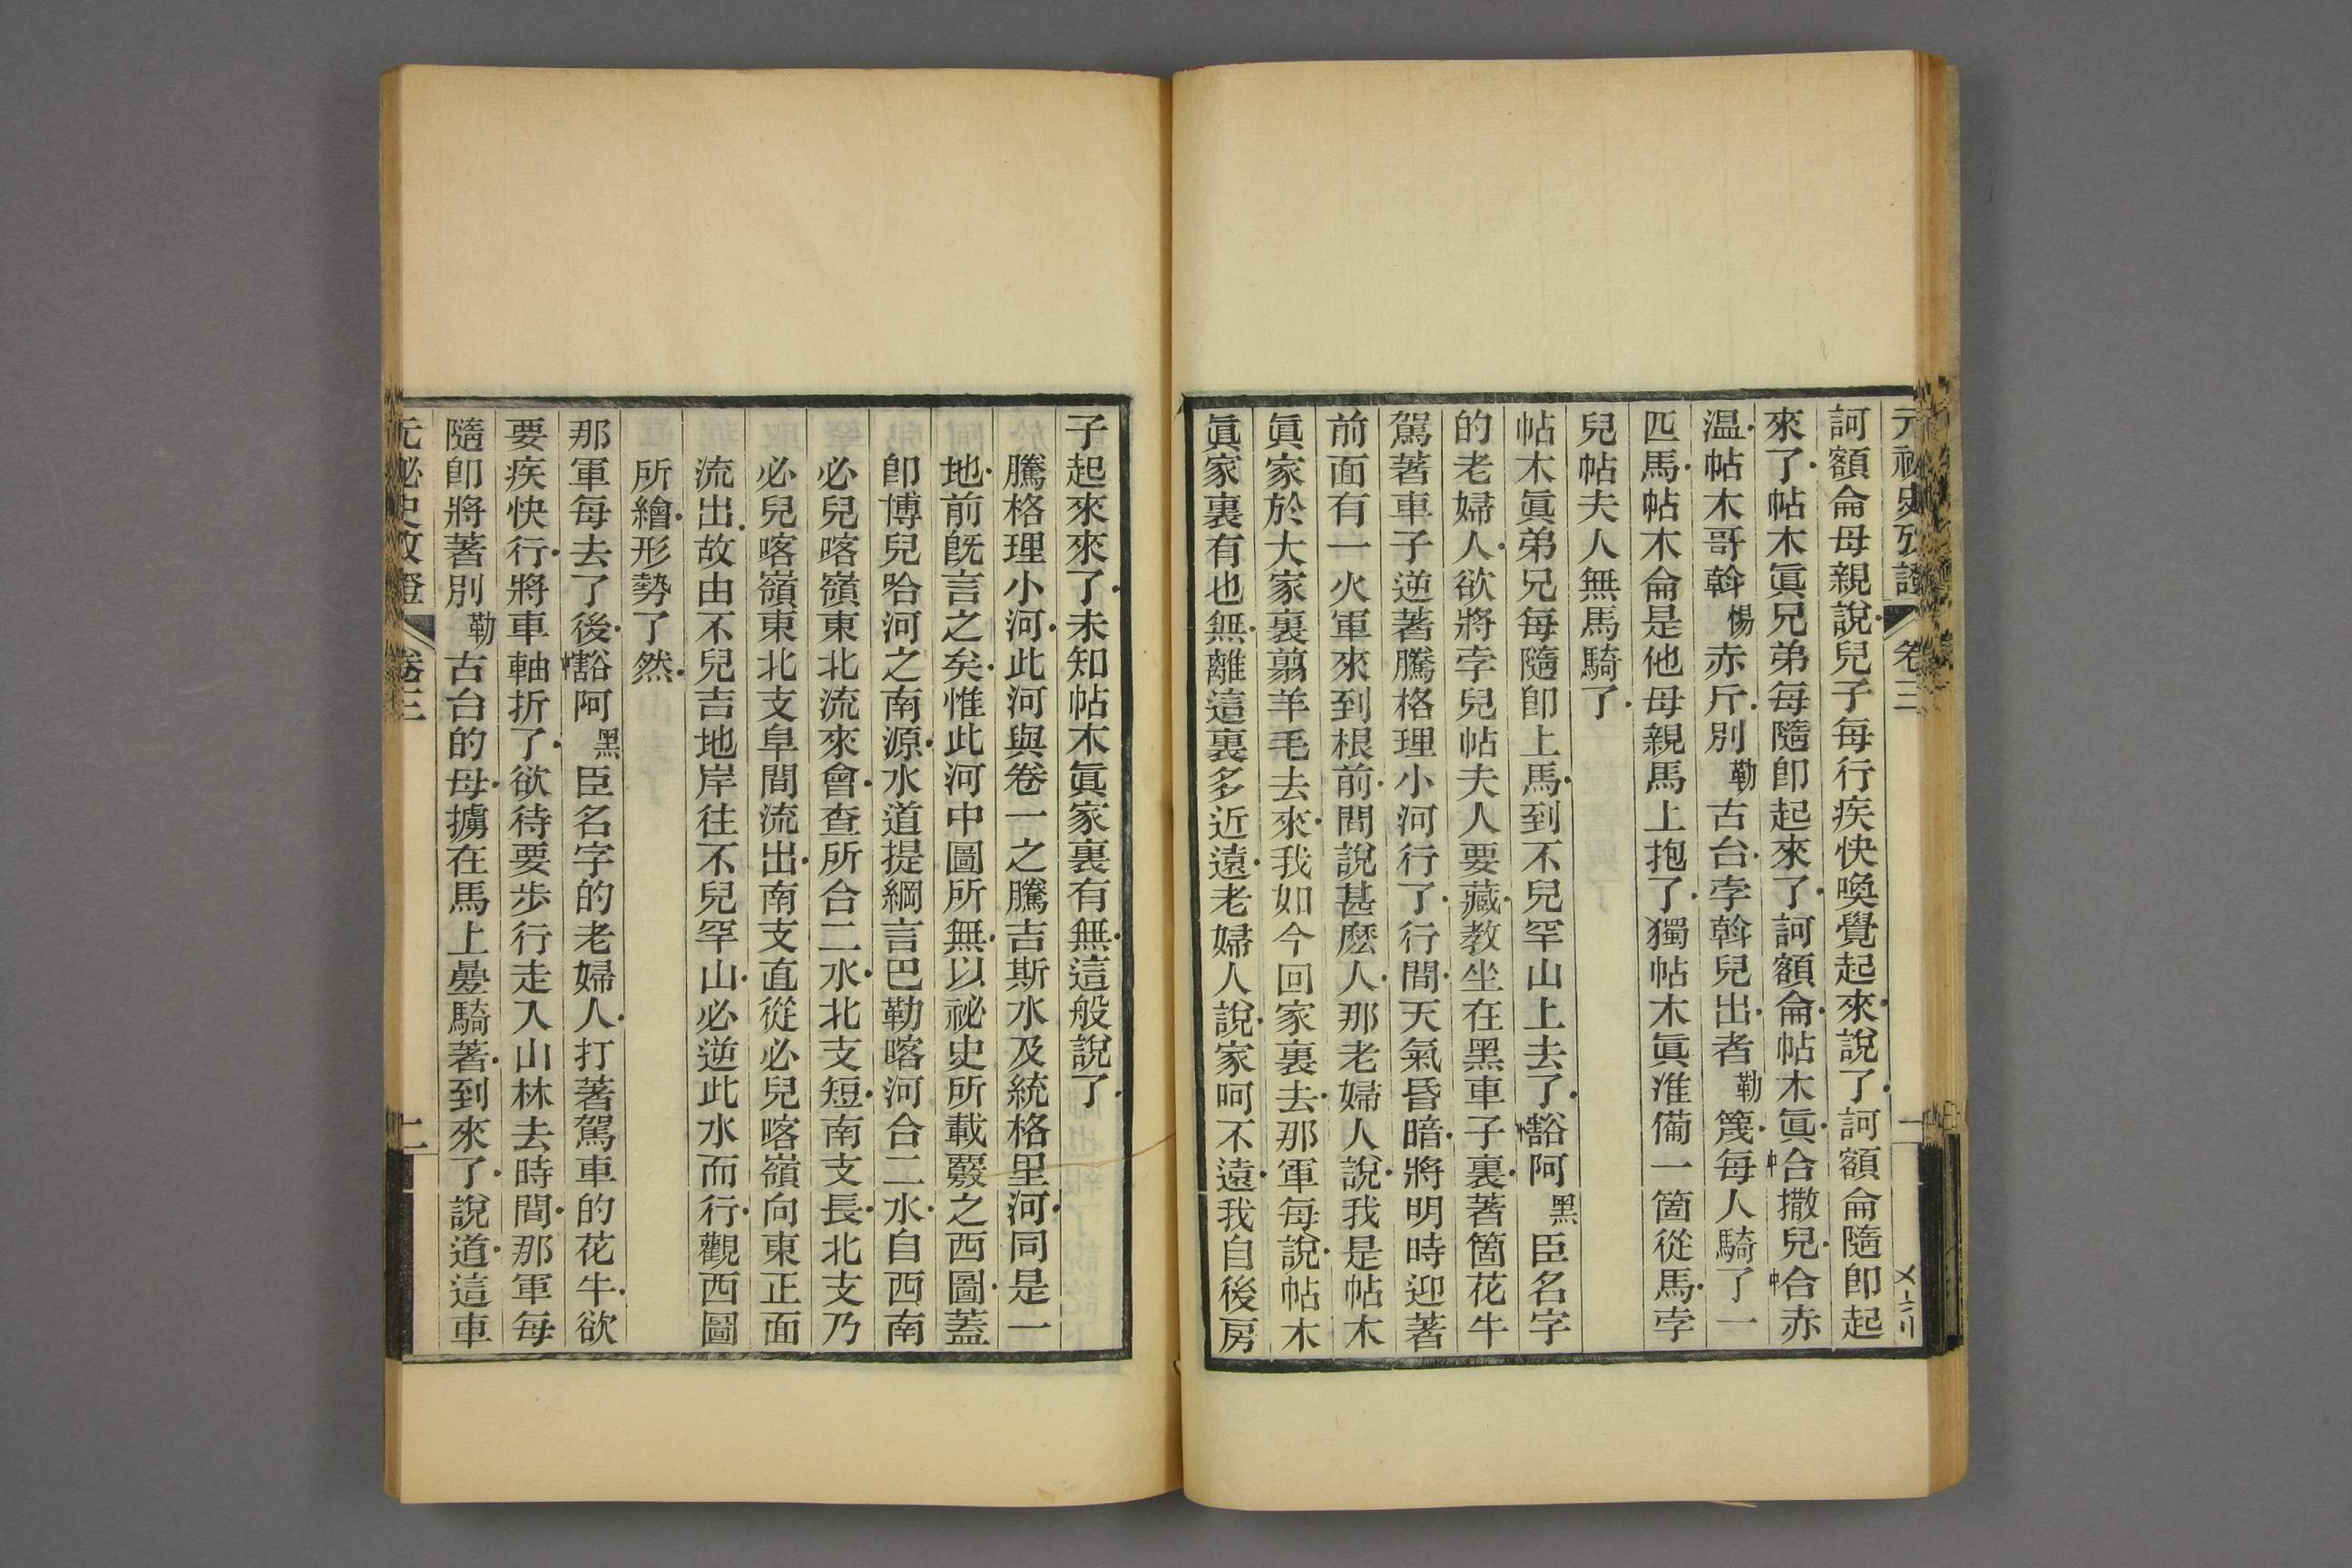 元祕史攷證 卷三 一
訶額侖母親說兒子每行疾快喚覺起來說了訶額侖隨卽起
來了帖木眞兄弟每隨卽起來了訶額侖帖木眞中合撒兒中合赤
温帖木哥斡惕赤斤別勒古台孛斡兒出者勒篾每人騎了一
匹馬帖木侖是他母親馬上抱了獨帖木眞准備一箇從馬孛
兒帖夫人無馬騎了
帖木眞弟兄每隨卽上馬到不兒罕山上去了中豁阿黑臣名字
的老婦人欲將孛兒帖夫人要藏教坐在黑車子裏著箇花牛
駕著車子逆著騰格理小河行了行間天氣昏暗將明時迎著
前面有一火軍來到根前問說甚麽人那老婦人說我是帖木
眞家於大家裏翦羊毛去來我如今回家裏去那軍每說帖木
眞家裏有也無離這裏多近遠老婦人說家呵不遠我自後房
子起來來了未知帖木眞家裏有無這般說了
騰格理小河此河與卷一之騰吉斯水及統格里河同是一
地前旣言之矣惟此河中圖所無以祕史所載覈之西圖蓋
卽博兒哈河之南源水道提綱言巴勒喀河合二水自西南
必兒喀嶺東北流來會查所合二水北支短南支長北支乃
必兒喀嶺東北支阜間流出南支直從必兒喀嶺向東正面
流出故由不兒吉地岸往不兒罕山必逆此水而行觀西圖
所繪形勢了然
那軍每去了後中豁阿黑臣名字的老婦人打著駕車的花牛欲
要疾快行將車軸折了欲待要步行走入山林去時間那軍每
隨卽將著別勒古台的母擄在馬上疊騎著到來了說道這車
元祕史攷證 卷三 二